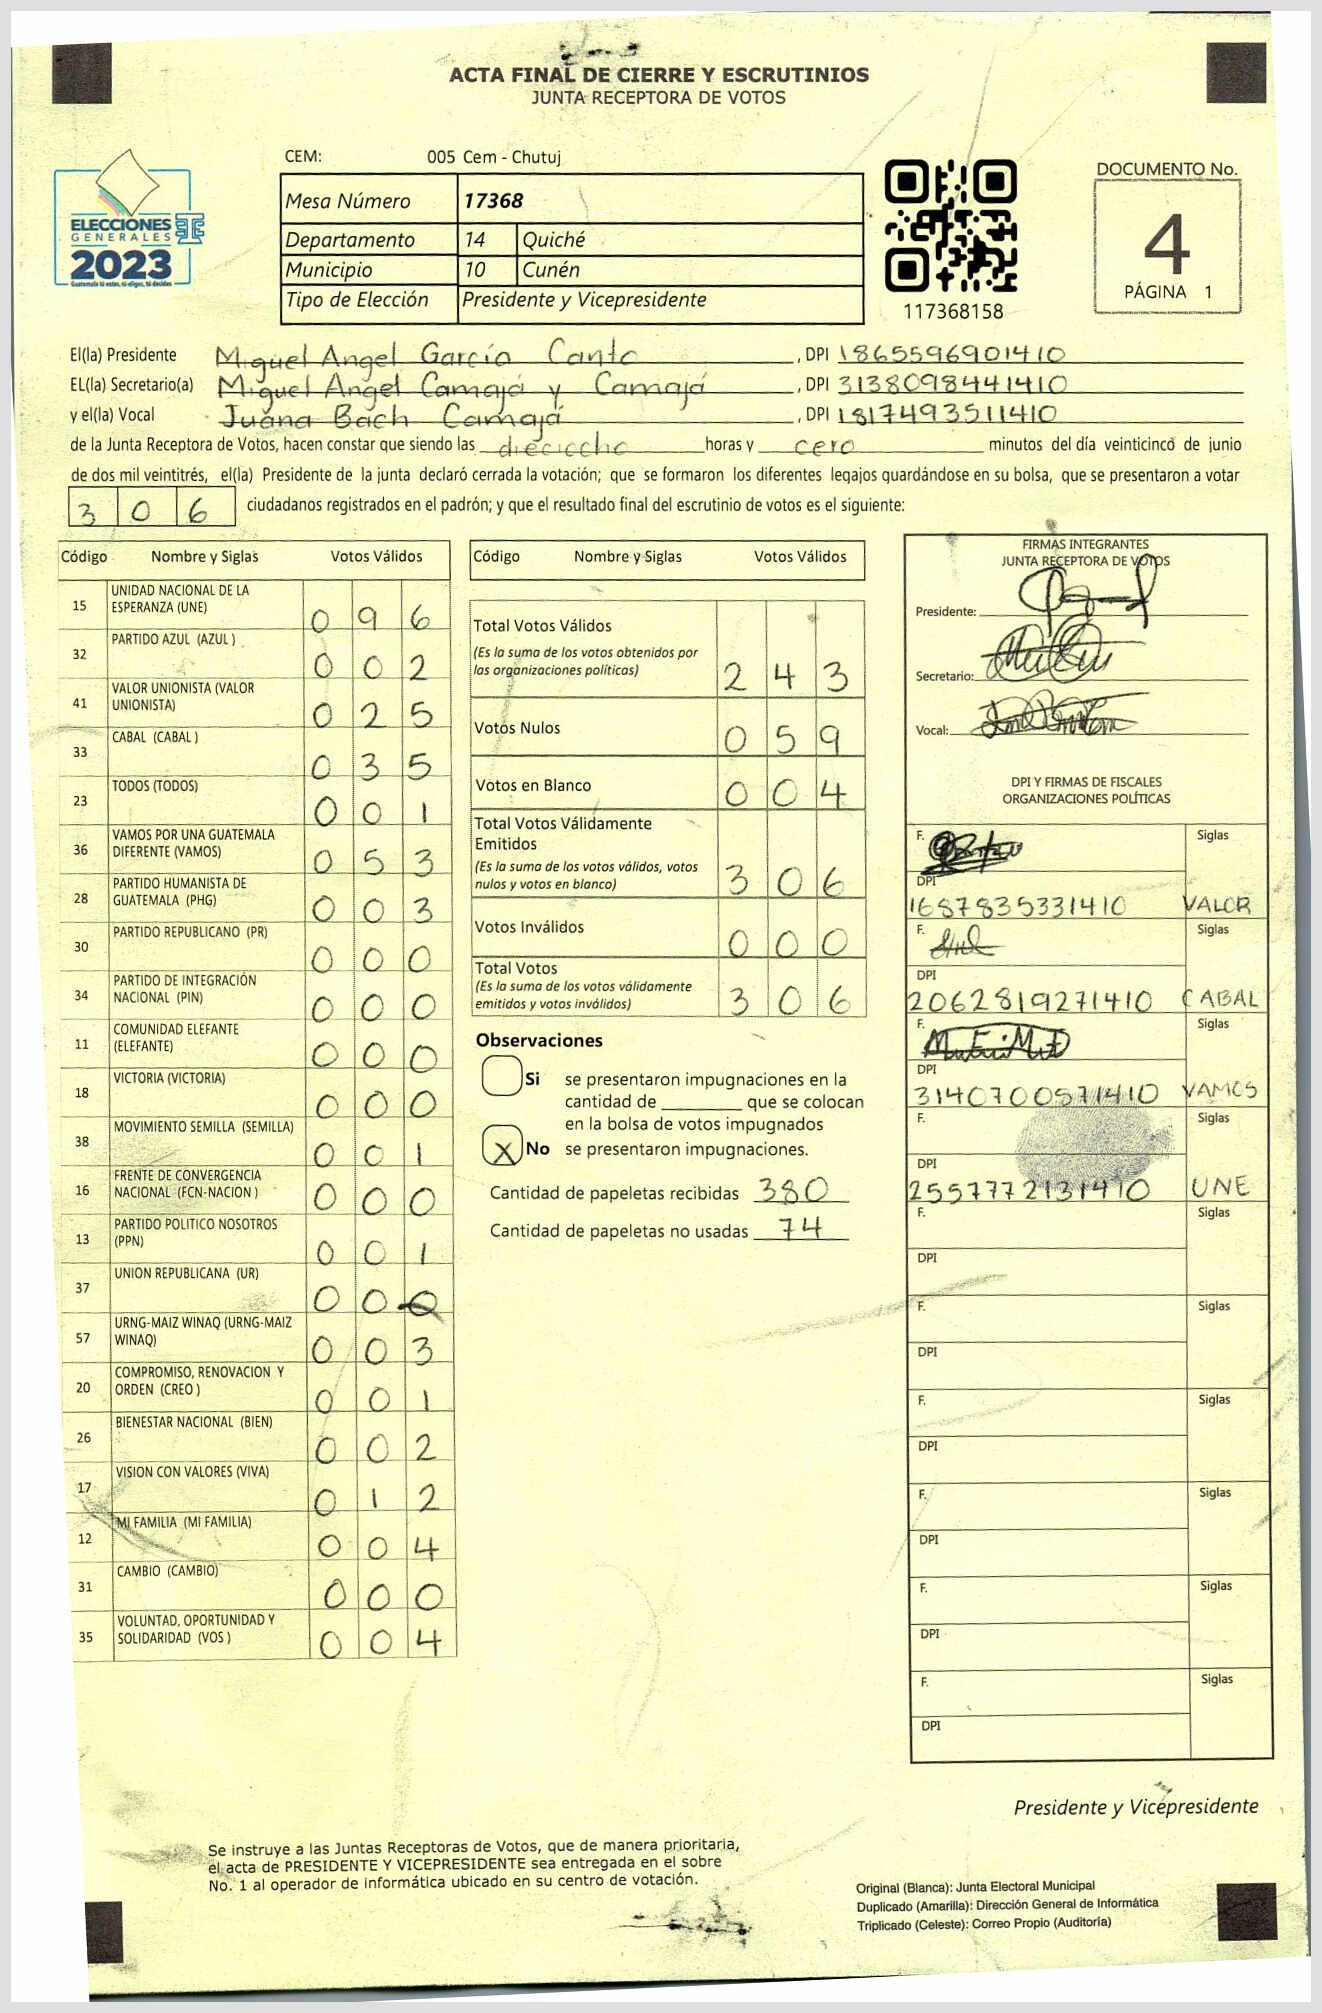 ACTA FINAL DE CIERRE Y ESCRUTINIOS
JUNTA RECEPTORA DE VOTOS
ELECCIONES
GENERALES
2023
Guatemala tú estas, tú eliges, tú decides
CEM: 005 Cem - Chutuj
Mesa Número 17368
Departamento 14 Quiché
Municipio 10 Cunén
Tipo de Elección Presidente y Vicepresidente
117368158
DOCUMENTO No.
4
PÁGINA 1
El(la) Presidente Miguel Angel García Canto, DPI 1865596901410
EL(la) Secretario(a) Miguel Angel Camajá y Camajá, DPI 3138098441410
y el(la) Vocal Juana Bach Camajá, DPI 1817493511410
de la Junta Receptora de Votos, hacen constar que siendo las dieciocho horas y cero minutos del día veinticinco de junio
de dos mil veintitrés, el(la) Presidente de la junta declaró cerrada la votación; que se formaron los diferentes legajos guardándose en su bolsa, que se presentaron a votar
306 ciudadanos registrados en el padrón; y que el resultado final del escrutinio de votos es el siguiente:
Código Nombre y Siglas Votos Válidos
15 UNIDAD NACIONAL DE LA ESPERANZA (UNE) 0 9 6
32 PARTIDO AZUL (AZUL ) 0 0 2
41 VALOR UNIONISTA (VALOR UNIONISTA) 0 2 5
33 CABAL (CABAL ) 0 3 5
23 TODOS (TODOS) 0 0 1
36 VAMOS POR UNA GUATEMALA DIFERENTE (VAMOS) 0 5 3
28 PARTIDO HUMANISTA DE GUATEMALA (PHG) 0 0 3
30 PARTIDO REPUBLICANO (PR) 0 0 0
34 PARTIDO DE INTEGRACIÓN NACIONAL (PIN) 0 0 0
11 COMUNIDAD ELEFANTE (ELEFANTE) 0 0 0
18 VICTORIA (VICTORIA) 0 0 0
38 MOVIMIENTO SEMILLA (SEMILLA) 0 0 1
16 FRENTE DE CONVERGENCIA NACIONAL (FCN-NACION ) 0 0 0
13 PARTIDO POLITICO NOSOTROS (PPN) 0 0 1
37 UNION REPUBLICANA (UR) 0 0 0
57 URNG-MAIZ WINAQ (URNG-MAIZ WINAQ) 0 0 3
20 COMPROMISO, RENOVACION Y ORDEN (CREO ) 0 0 1
26 BIENESTAR NACIONAL (BIEN) 0 0 2
17 VISION CON VALORES (VIVA) 0 1 2
12 MI FAMILIA (MI FAMILIA) 0 0 4
31 CAMBIO (CAMBIO) 0 0 0
35 VOLUNTAD, OPORTUNIDAD Y SOLIDARIDAD (VOS ) 0 0 4
Código Nombre y Siglas Votos Válidos
Total Votos Válidos 2 4 3
(Es la suma de los votos obtenidos por
las organizaciones políticas)
Votos Nulos 0 5 9
Votos en Blanco 0 0 4
Total Votos Válidamente
Emitidos 3 0 6
(Es la suma de los votos válidos, votos
nulos y votos en blanco)
Votos Inválidos 0 0 0
Total Votos 3 0 6
(Es la suma de los votos válidamente
emitidos y votos inválidos)
Observaciones
Si se presentaron impugnaciones en la
cantidad de ________ que se colocan
en la bolsa de votos impugnados
X No se presentaron impugnaciones.
Cantidad de papeletas recibidas 380
Cantidad de papeletas no usadas 74
FIRMAS INTEGRANTES
JUNTA RECEPTORA DE VOTOS
Presidente:
Secretario:
Vocal:
DPI Y FIRMAS DE FISCALES
ORGANIZACIONES POLÍTICAS
F. Siglas
DPI
1687835331410 VALOR
F. Siglas
DPI
2062819271410 CABAL
F. Siglas
DPI
3140700571410 VAMOS
F. Siglas
DPI
2557772131410 UNE
F. Siglas
DPI
F. Siglas
DPI
F. Siglas
DPI
F. Siglas
DPI
F. Siglas
DPI
F. Siglas
DPI
Presidente y Vicepresidente
Se instruye a las Juntas Receptoras de Votos, que de manera prioritaria,
el acta de PRESIDENTE Y VICEPRESIDENTE sea entregada en el sobre
No. 1 al operador de informática ubicado en su centro de votación.
Original (Blanca): Junta Electoral Municipal
Duplicado (Amarilla): Dirección General de Informática
Triplicado (Celeste): Correo Propio (Auditoría)